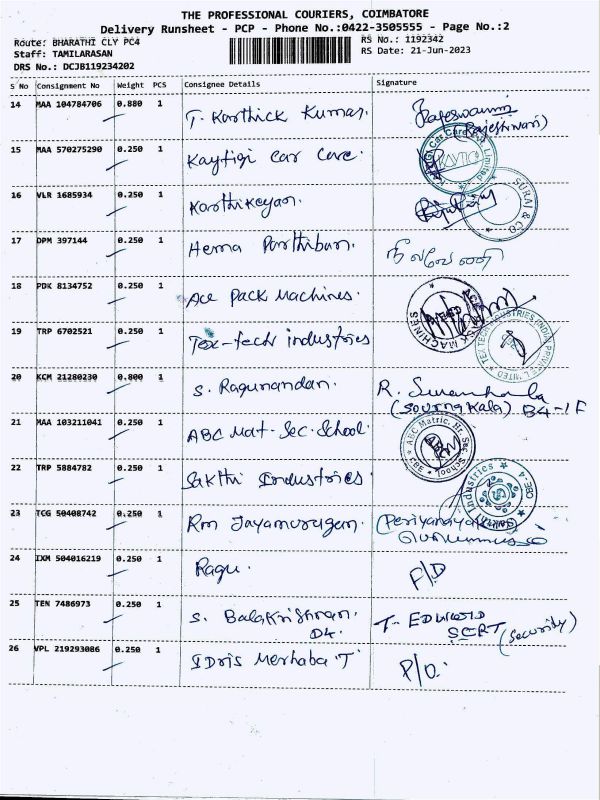 THE PROFESSIONAL COURIERS, COIMBATORE
Delivery Runsheet - PCP - Phone No.:0422-3505555 - Page No.:2
Route: BHARATHI CLY PC4
RS No.: 1192342
Staff: TAMILARASAN
RS Date: 21-Jun-2023
DRS No.: DCJB119234202
S No Consignment No Weight PCS Consignee Details Signature
14 MAA 104784706 0.880 1 T. Karthick Kumar. Rajeswari
(Rajeshwari)
15 MAA 570275290 0.250 1 Kaytigi Car Care.
16 VLR 1685934 0.250 1 Karthikeyan. SURAJ & CO
17 DPM 397144 0.250 1 Hema Parthiban.
18 PDK 8134752 0.250 1 Ace Pack Machines.
19 TRP 6702521 0.250 1 Tex-tech industries
20 KCM 21280230 0.800 1 S. Ragunandan. R.
(Sournakala) B4-1F
21 MAA 103211041 0.250 1 ABC Mat-Sec-School. ABC Matric. Hr. Sec. School CBE
22 TRP 5884782 0.250 1 Sakthi Industries Sakthi Industries CBE-4
23 TCG 50408742 0.250 1 Rm Jayamurugan.
24 IXM 504016219 0.250 1 Ragu. P/D
25 TEN 7486973 0.250 1 S. Balakrishnan. T- EDWARD
D4. SCRT (Security)
26 VPL 219293086 0.250 1 IDris Merhaba 'T' P/D.